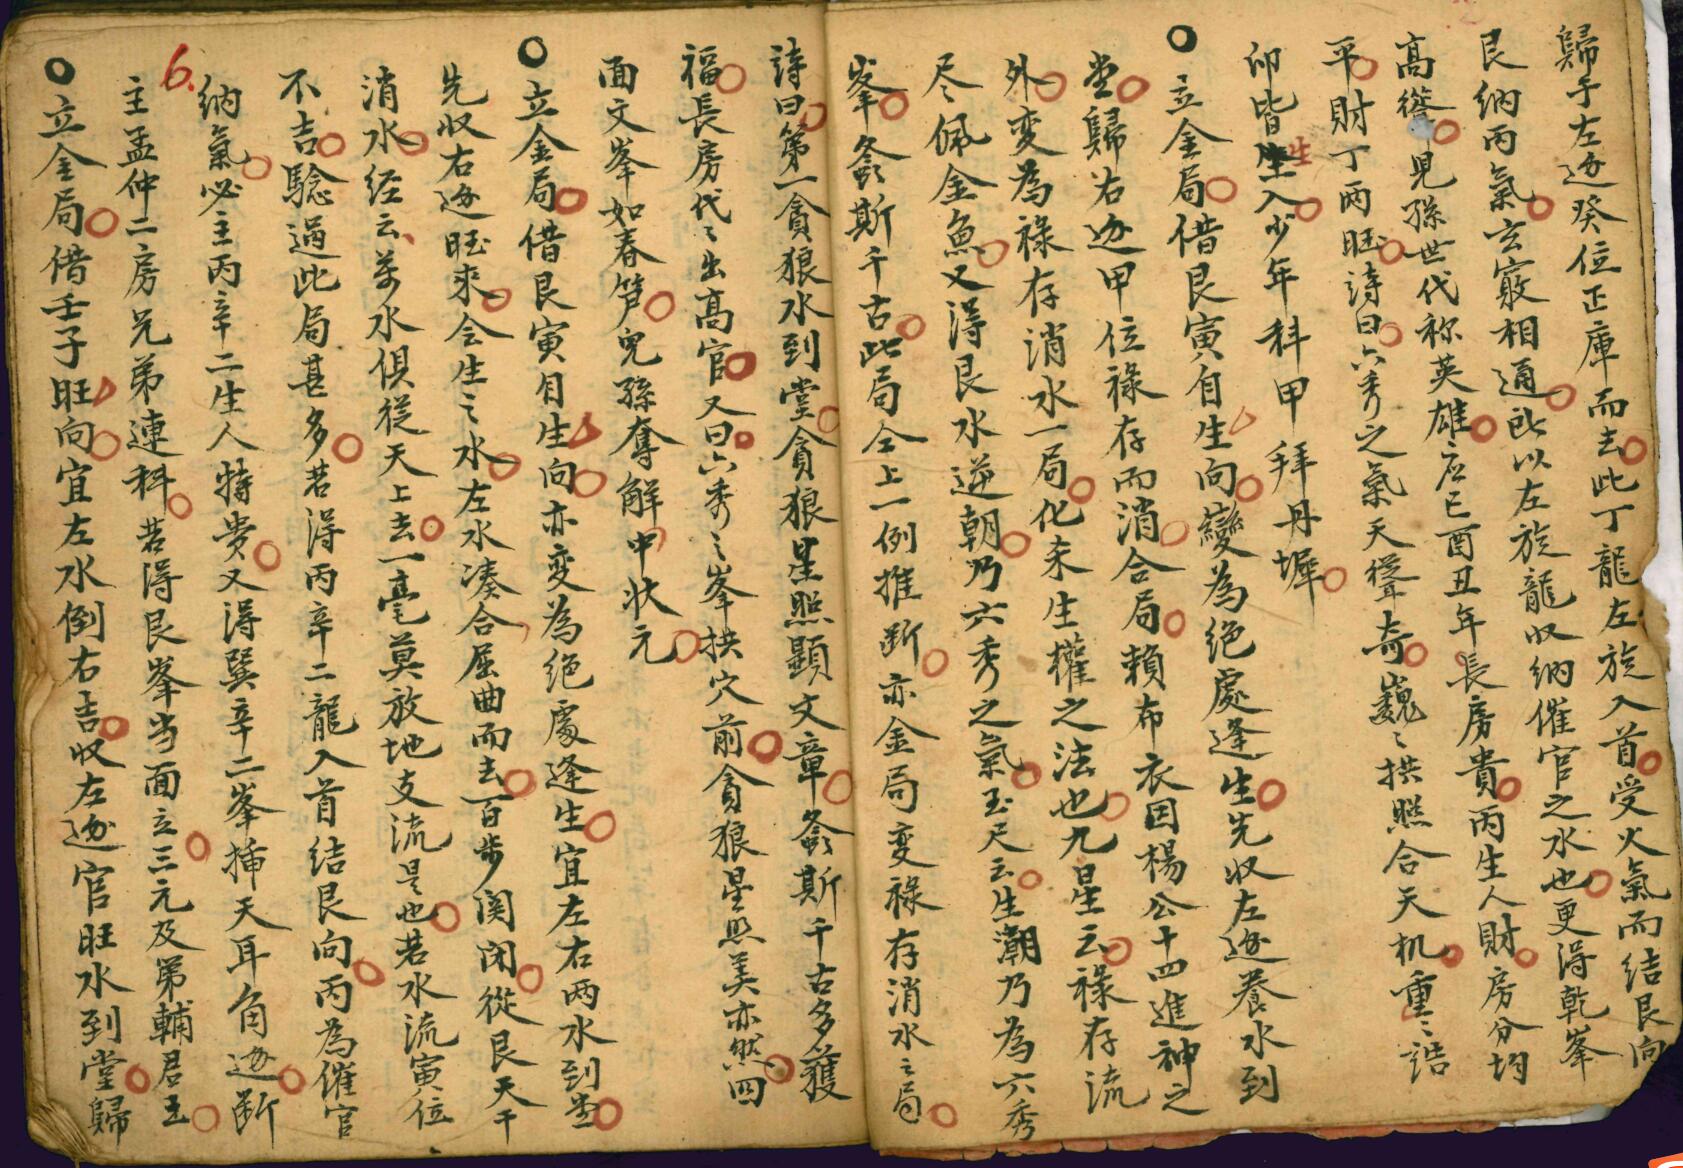 歸子左边癸位正庫而去此丁龍左旋入首受火氣而結艮向
艮納丙氣玄竅相通此以左旋龍収納催官之水也更得乾峯
高聳見孫世代称英雄应巳酉丑年長房貴丙生人財房分均
平財丁两旺詩曰六秀之氣天聳奇巍〻拱照合天机重〻誥
卯皆生入少年科甲拜丹墀
立金局借艮寅自生向變為絕處逢生先収左边养水到
堂歸右边甲位祿存而消合局賴布衣因楊公十四進神之
外变為祿存消水一局化未生權之法也九星云祿存流
尽佩金魚又得艮水逆朝乃六秀之氣玉尺云生潮乃為六秀
峯螽斯千古此局仝上一例推断亦金局变祿存消水之局
詩曰第一貪狼水到堂貪狼星照顯文章螽斯千古多獲
福長房代〻出高官又曰六秀之峯拱穴前貪狼星照美亦然四
面文峯如春笋兒孫奪解中状元
立金局借艮寅自生向亦变為絕處逢生宜左右两水到堂
先収右边旺來会生之水左水湊合屈曲而去百步関闭從艮天干
消水経云若水俱從天上去一毫莫放地支流是也若水流寅位
不吉騐過此局甚多若得丙辛二龍入首結艮向丙為催官
納氣必主丙辛二生人特貴又得巽辛二峯揷天耳角边断
主孟仲二房兄弟連科若得艮峯当面立三元及第輔君王
立金局借壬子旺向宜左水倒右吉収左边官旺水到堂歸
6.